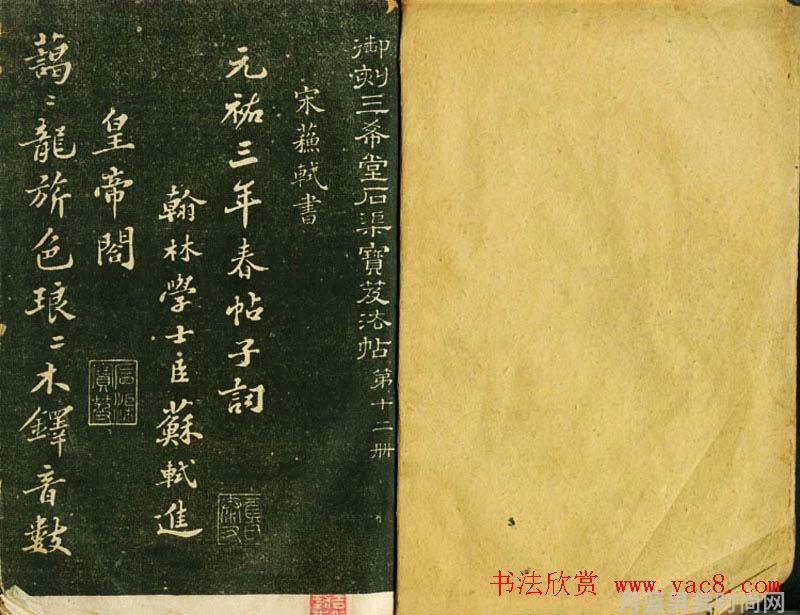 御刻三希堂石渠寶笈法帖 第十二册
宋蘇軾書
元祐三年春帖子詞
翰林學士臣蘇軾進
皇帝閣
藹〻龍旂色琅〻木鐸音數
书法欣赏 www.yac8.com